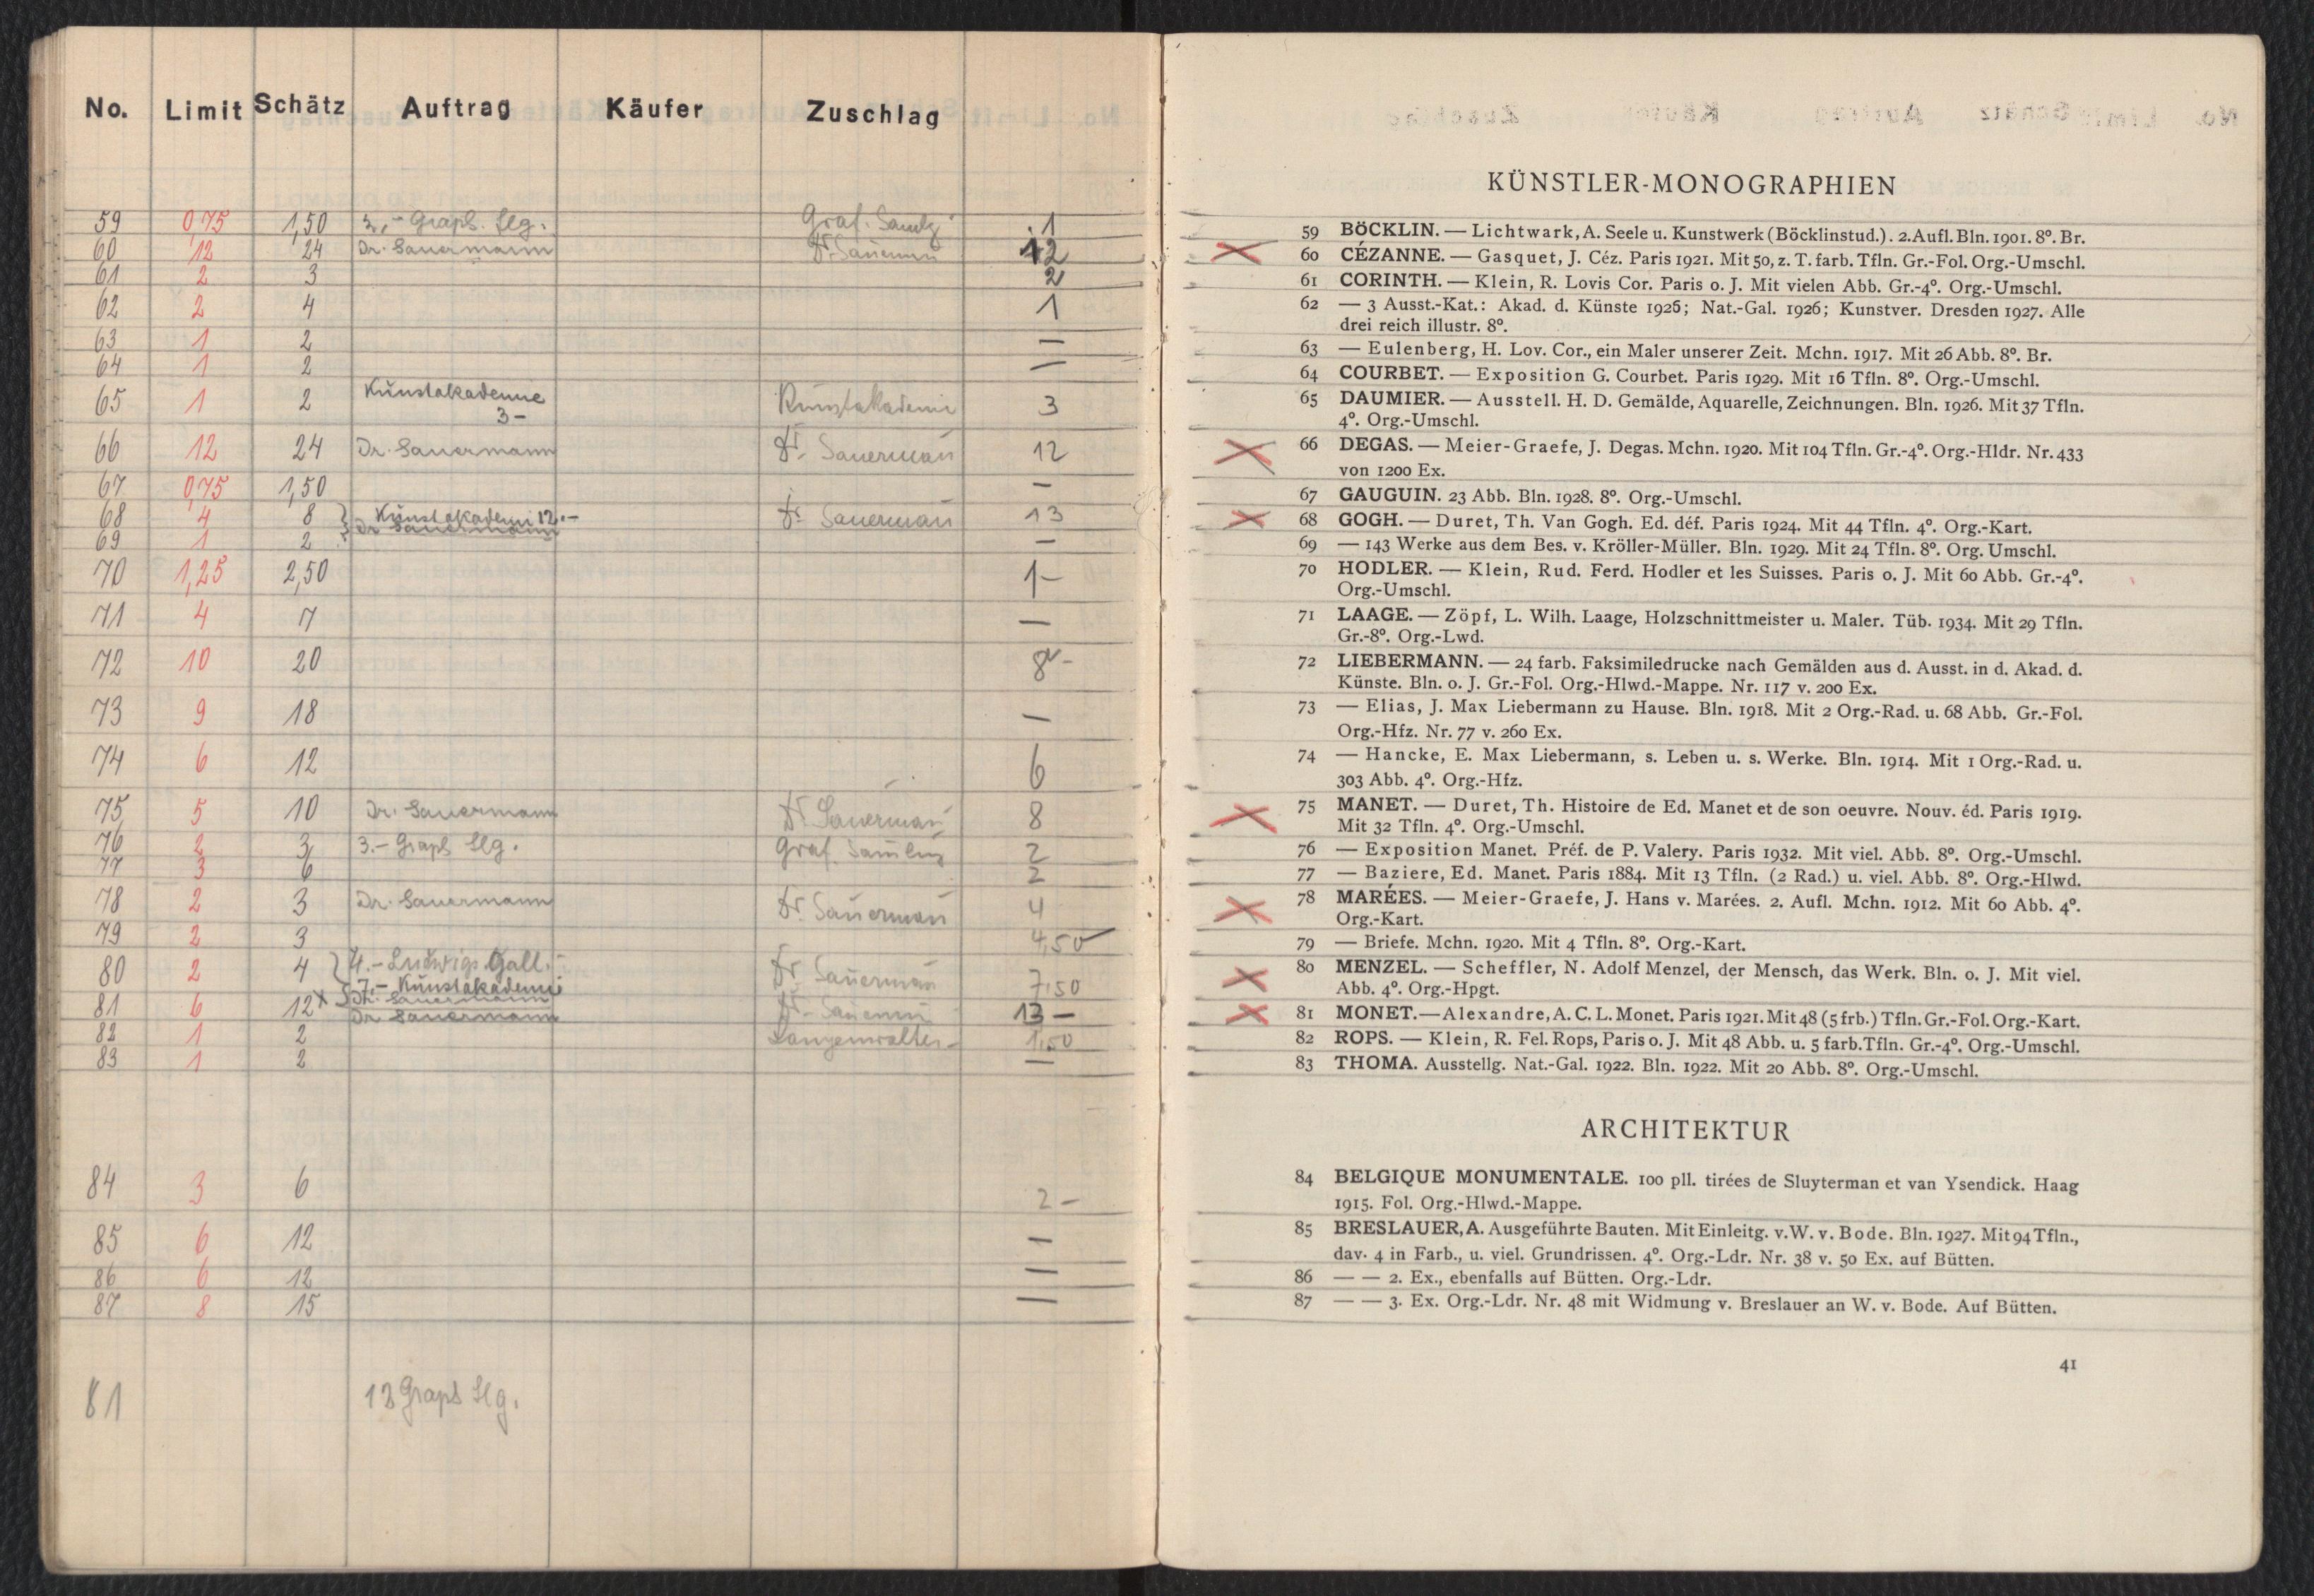 No. Limit Schätz Auftrag Käufer Zuschlag
59 0,75 1,50 3,- Graph. Slg. Graf. 1
60 12 24 Dr. Sauermann Dr. Sauermann 12
61 2 3 2
62 2 4 1
63 1 2 —
64 1 2 —
65 1 2 Kunstakademie 3- Kunstakademie 3
66 12 24 Dr. Sauermann Dr. Sauermann 12
67 0,75 1,50 —
68 4 8 } Kunstakademie 12.- Dr. Sauermann 13
69 1 2 } Dr Sauermann —
70 1,25 2,50 1—
71 4 7 —
72 10 20 8-
73 9 18 —
74 6 12 6
75 5 10 Dr. Sauermann Dr. Sauermann 8
76 2 3 3.- Graph Slg. Graf. 2
77 3 6 2
78 2 3 Dr. Sauermann Dr. Sauermann 4
79 2 3 4,50
80 2 4 } 4.- Ludwigs Gall. Dr. Sauermann 7,50
7,- Kunstakademie
Dr. Sauermann
81 6 12 x Dr Sauermann Dr. Sauermann 13 —
82 1 2 Langenwalter 1,50
83 1 2 —
84 3 6 2 -
85 6 12 —
86 6 12 —
87 8 15 —
81 12 Graph Slg.
KÜNSTLER-MONOGRAPHIEN
59 BÖCKLIN. — Lichtwark, A. Seele u. Kunstwerk (Böcklinstud.). 2. Aufl. Bln. 1901. 8º. Br.
60 CÉZANNE. — Gasquet, J. Céz. Paris 1921. Mit 50, z. T. farb. Tfln. Gr.-Fol. Org.-Umschl.
61 CORINTH. — Klein, R. Lovis Cor. Paris o. J. Mit vielen Abb. Gr.-4º. Org.-Umschl.
62 — 3 Ausst.-Kat.: Akad. d. Künste 1926; Nat.-Gal. 1926; Kunstver. Dresden 1927. Alle
drei reich illustr. 8º.
63 — Eulenberg, H. Lov. Cor., ein Maler unserer Zeit. Mchn. 1917. Mit 26 Abb. 8º. Br.
64 COURBET. — Exposition G. Courbet. Paris 1929. Mit 16 Tfln. 8º. Org.-Umschl.
65 DAUMIER. — Ausstell. H. D. Gemälde, Aquarelle, Zeichnungen. Bln. 1926. Mit 37 Tfln.
4º. Org.-Umschl.
66 DEGAS. — Meier-Graefe, J. Degas. Mchn. 1920. Mit 104 Tfln. Gr.-4º. Org.-Hldr. Nr. 433
von 1200 Ex.
67 GAUGUIN. 23 Abb. Bln. 1928. 8º. Org.-Umschl.
68 GOGH. — Duret, Th. Van Gogh. Ed. déf. Paris 1924. Mit 44 Tfln. 4º. Org.-Kart.
69 — 143 Werke aus dem Bes. v. Kröller-Müller. Bln. 1929. Mit 24 Tfln. 8º. Org. Umschl.
70 HODLER. — Klein, Rud. Ferd. Hodler et les Suisses. Paris o. J. Mit 60 Abb. Gr.-4º.
Org.-Umschl.
71 LAAGE. — Zöpf, L. Wilh. Laage, Holzschnittmeister u. Maler. Tüb. 1934. Mit 29 Tfln.
Gr.-8º. Org.-Lwd.
72 LIEBERMANN. — 24 farb. Faksimiledrucke nach Gemälden aus d. Ausst. in d. Akad. d.
Künste. Bln. o. J. Gr.-Fol. Org.-Hlwd.-Mappe. Nr. 117 v. 200 Ex.
73 — Elias, J. Max Liebermann zu Hause. Bln. 1918. Mit 2 Org.-Rad. u. 68 Abb. Gr.-Fol.
Org.-Hfz. Nr. 77 v. 260 Ex.
74 — Hancke, E. Max Liebermann, s. Leben u. s. Werke. Bln. 1914. Mit 1 Org.-Rad. u.
303 Abb. 4º. Org.-Hfz.
75 MANET. — Duret, Th. Histoire de Ed. Manet et de son oeuvre. Nouv. éd. Paris 1919.
Mit 32 Tfln. 4º. Org.-Umschl.
76 — Exposition Manet. Préf. de P. Valery. Paris 1932. Mit viel. Abb. 8º. Org.-Umschl.
77 — Baziere, Ed. Manet. Paris 1884. Mit 13 Tfln. (2 Rad.) u. viel. Abb. 8º. Org.-Hlwd.
78 MARÉES. — Meier-Graefe, J. Hans v. Marées. 2. Aufl. Mchn. 1912. Mit 60 Abb. 4º.
Org.-Kart.
79 — Briefe. Mchn. 1920. Mit 4 Tfln. 8º. Org.-Kart.
80 MENZEL. — Scheffler, N. Adolf Menzel, der Mensch, das Werk. Bln. o. J. Mit viel.
Abb. 4º. Org.-Hpgt.
81 MONET. — Alexandre, A. C. L. Monet. Paris 1921. Mit 48 (5 frb.) Tfln. Gr.-Fol. Org.-Kart.
82 ROPS. — Klein, R. Fel. Rops, Paris o. J. Mit 48 Abb. u. 5 farb. Tfln. Gr.-4º. Org.-Umschl.
83 THOMA. Ausstellg. Nat.-Gal. 1922. Bln. 1922. Mit 20 Abb. 8º. Org.-Umschl.
ARCHITEKTUR
84 BELGIQUE MONUMENTALE. 100 pll. tirées de Sluyterman et van Ysendick. Haag
1915. Fol. Org.-Hlwd.-Mappe.
85 BRESLAUER, A. Ausgeführte Bauten. Mit Einleitg. v. W. v. Bode. Bln. 1927. Mit 94 Tfln.,
dav. 4 in Farb., u. viel. Grundrissen. 4º. Org.-Ldr. Nr. 38 v. 50 Ex. auf Bütten.
86 — — 2. Ex., ebenfalls auf Bütten. Org.-Ldr.
87 — — 3. Ex. Org.-Ldr. Nr. 48 mit Widmung v. Breslauer an W. v. Bode. Auf Bütten.
41